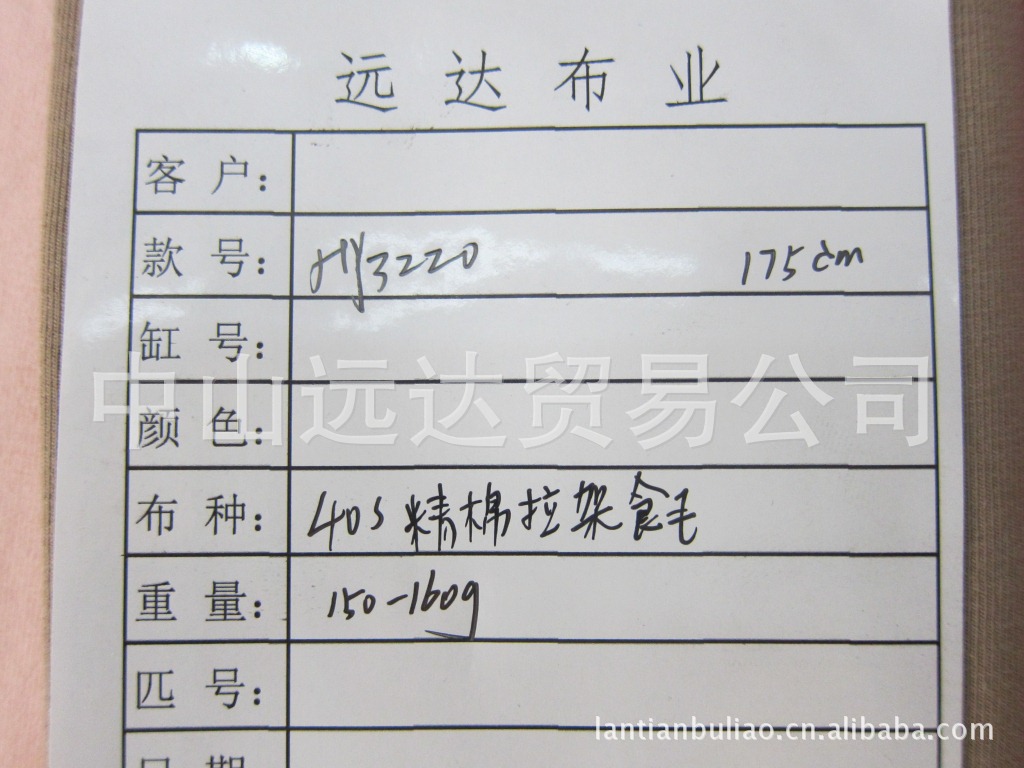 远达布业
客户：
款号： HY3220 175cm
缸号：
中山远达贸易公司
颜色：
布种： 40S精棉拉架食毛
重量： 150-160g
匹号：
lantianbuliao.cn.alibaba.com
日期